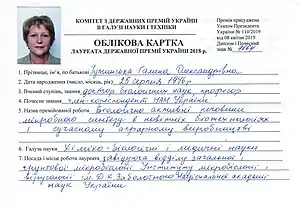 КОМІТЕТ З ДЕРЖАВНИХ ПРЕМІЙ УКРАЇНИ
В ГАЛУЗІ НАУКИ І ТЕХНІКИ
Премія присуджена
Указом Президента
України № 110/2019
від 08 квітня 2019
Диплом і Почесний
знак №
ОБЛІКОВА КАРТКА
ЛАУРЕАТА ДЕРЖАВНОЇ ПРЕМІЇ УКРАЇНИ 2018 р.
1. Прізвище, ім'я, по батькові Іутинська Галина Олександрівна
2. Дата народження (число, місяць, рік) 25 серпня 1946 г
3. Вчений ступінь, звання доктор біологічних наук, професор
4. Почесне звання член-кореспондент НАН України
5. Назва премійованої роботи Біологічно активні речовини
мікробного синтезу в новітніх біотехнологіях і
сучасному аграрному виробництві
6. Галузь науки Хіміко-біологічні і медичні науки
7. Посада і місце роботи лауреата завідувач відділу загальної і
ґрунтової мікробіології Інституту мікробіології і
вірусології ім. Д.К. Заболотного Національної академії
наук України